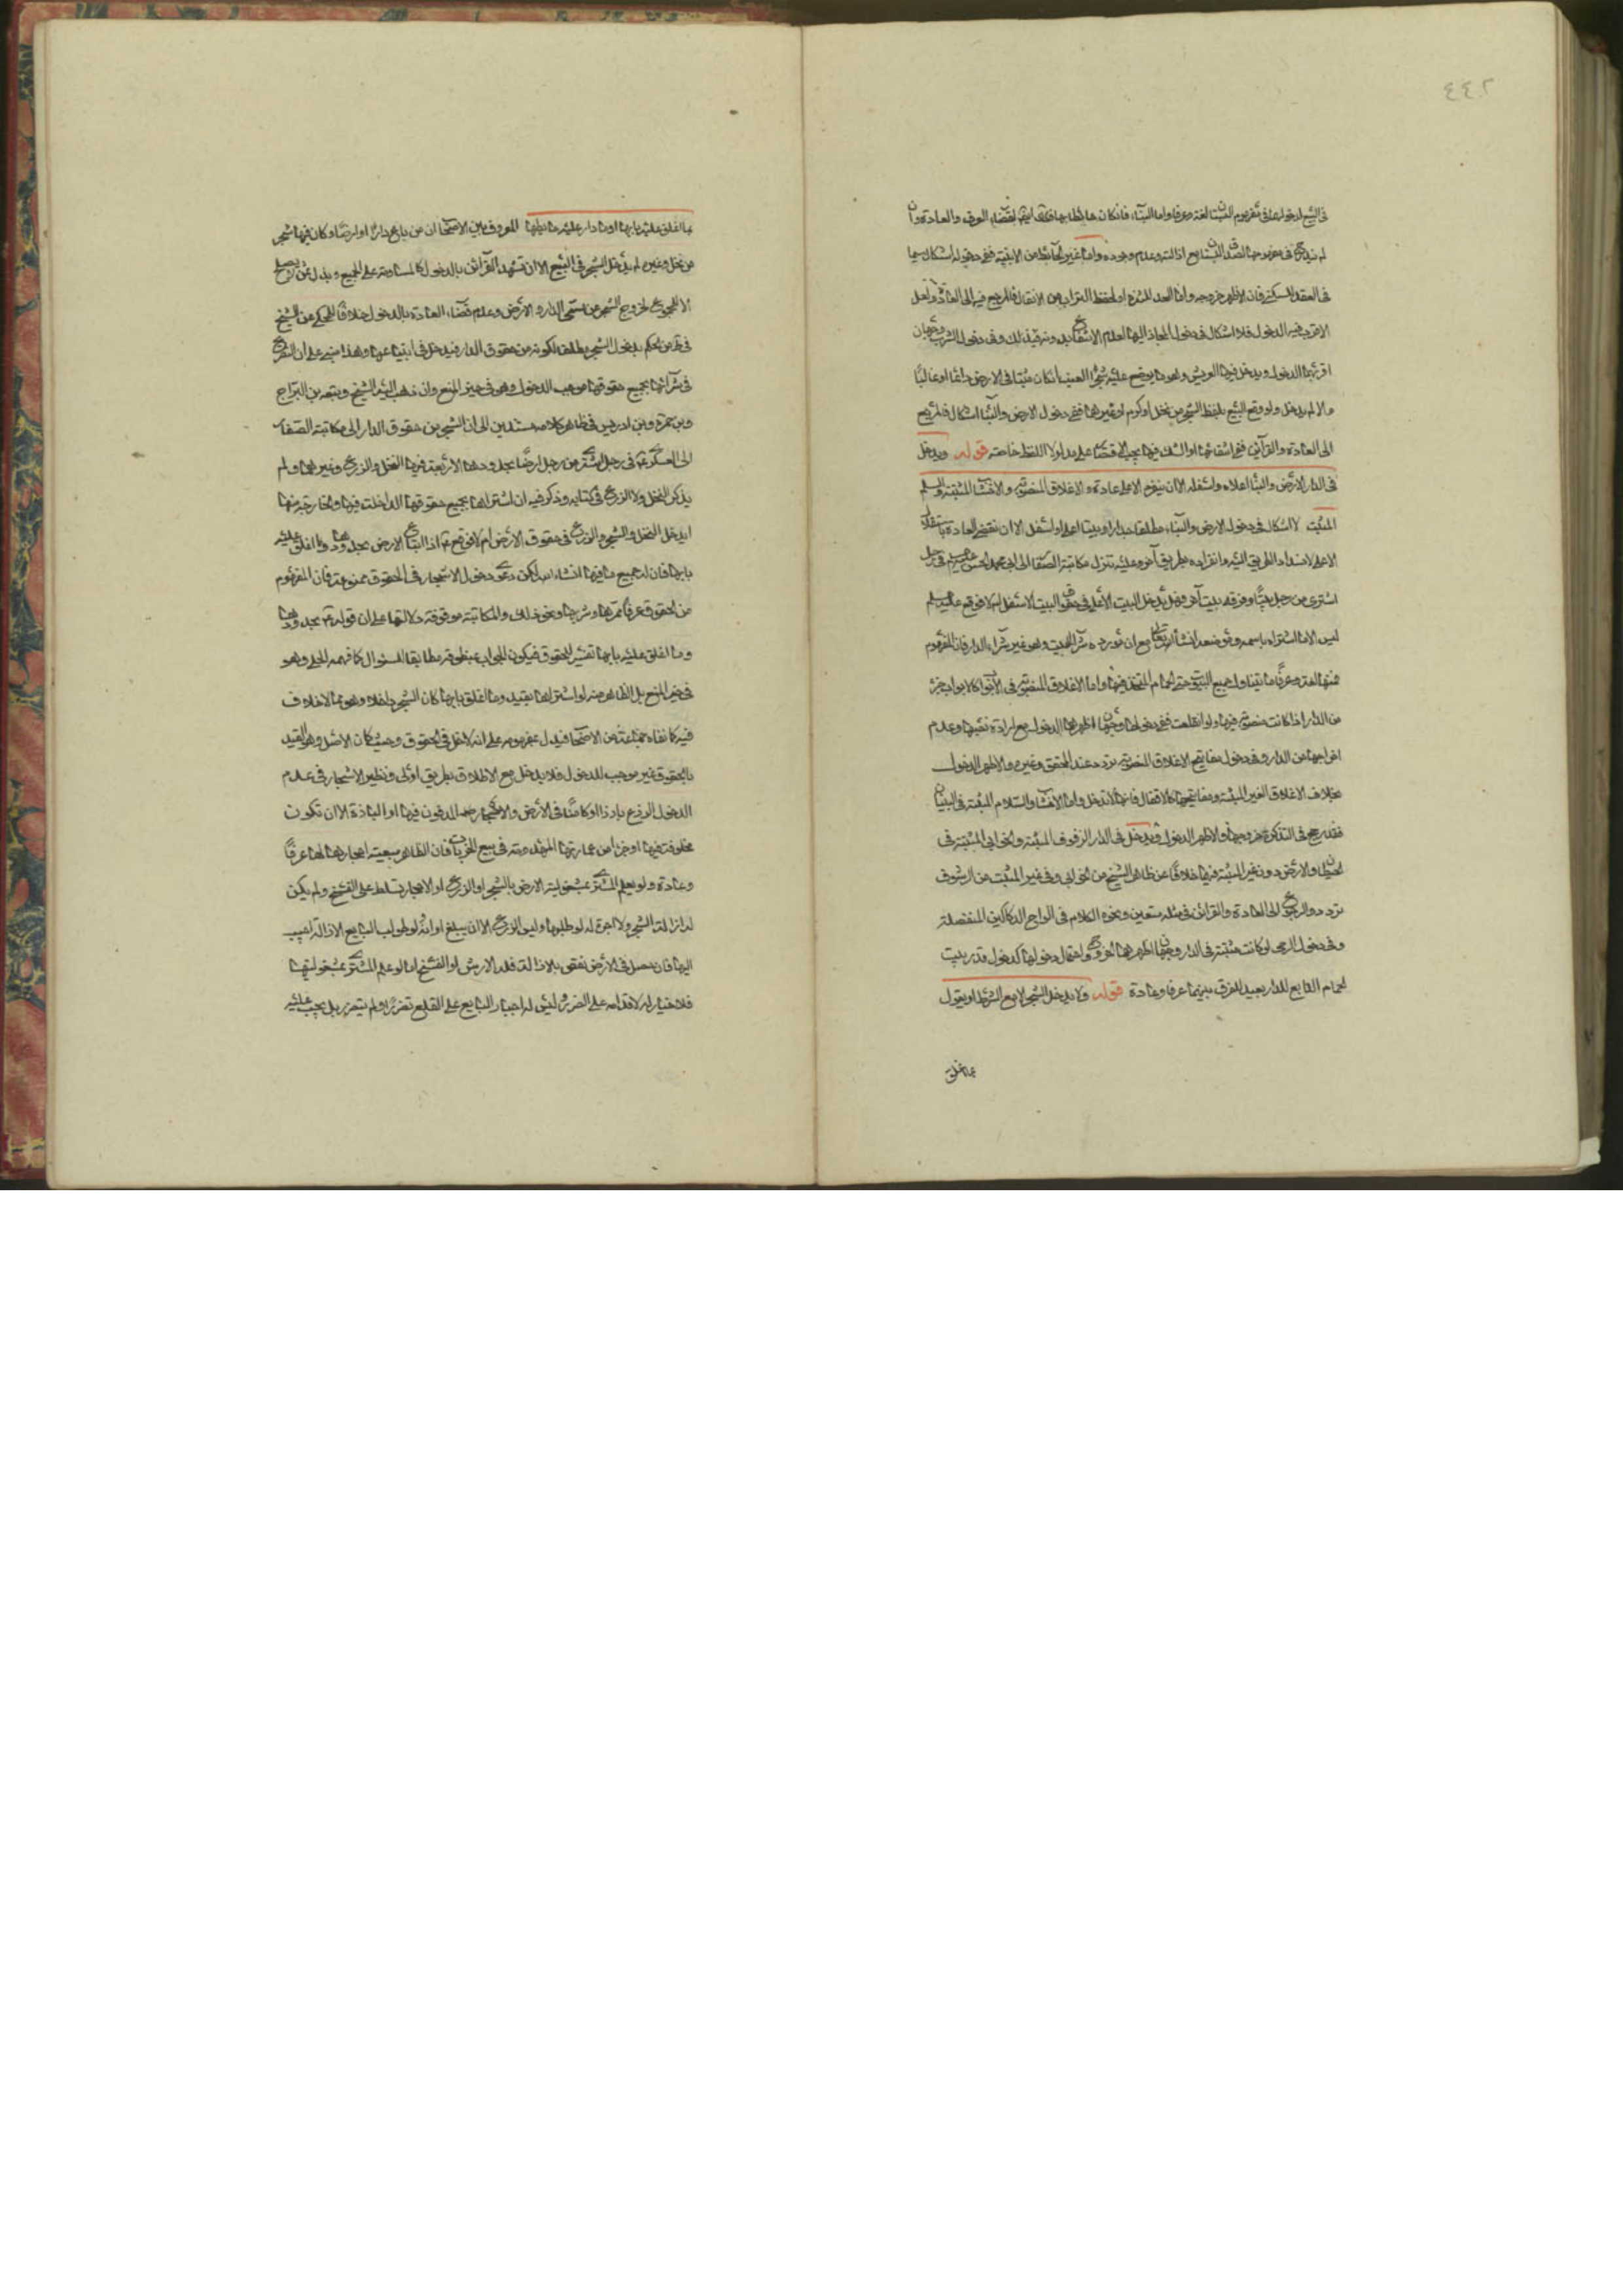 ٤٤٢
في البيع لدخولها في مفهوم البستان لغة وعرفا واما البناء فان كان حايطا بها لقضاء العرف والعادة وان
لم يتوقف صدق البستان مع ازالته وعدم وجوده واما غير الحايط من الابنية ففي دخوله اشكال سيما
في العقد للسكنى فان الاظهر خروجه واما العد للنزه او لحفظ من الانتقال فالمرجع فيه الى العادة ولعل
الاقرب فيه الدخول فلا اشكال في دخول المجاز اليها لعدم الانتفاع بدونه وفي دخول الشرب وجهان
اقربهما الدخول ويدخل فيها العريش وهو ما يوضع عليه شجر العنب ان كان مثبتا في الارض دائما او غالبا
والا لم يدخل ولو وقع البيع بلفظ الشجر من نخل او كرم او غيرهما ففي دخول الارض والبناء اشكال فالمرجع
الى العادة والقرائن فمع انتفائهما او الشك فيهما يجب الاقتصار على مدلول اللفظ خاصة قوله ويدخل
في الدار الارض والبناء اعلاه واسفله الا ان يتفرد الاعلى عادة والاغلاق المنصوبة والاخشاب المثبتة والسلم
المثبت لا اشكال في دخول الارض والبناء مطلقا دارا وبيتا اعلى او اسفل الا ان تقتضي العادة باستقلال
الاعلى لانسداد الطريق اليه وانفراده بطريق آخر وعليه تنزل مكاتبة الصفار الى ابي محمد الحسن في رجل
اشترى من رجل بيتا وفوقه بيت آخر فهل يدخل البيت الاعلى في حقوق البيت الاسفل ام لا فوقع عليه السلم
ليس الا ما اشتراه باسمه وموضعه انشاء الله تعالى مع ان مورده شراء البيت وهو غير شراء الدار فان المفهوم
منها لغة وعرفا ما يتناول جميع البيوت حتى الحمام المتخذ فيها واما الاغلاق المنصوبة في الابواب كالابواب جزء
من الدار اذا كانت منصوبة فيها ولو انقلعت ففي دخولها وجهان اظهرهما الدخول مع ارادة نصبها وعدم
اخراجها من الدار وفي دخول مفاتيح الاغلاق المنصوبة تردد عند المحقق وغيره والاظهر الدخول
بخلاف الاغلاق الغير المثبتة ومفاتيحها كالاقفال فانها لا تدخل واما الاخشاب والسلاليم المثبتة في البنيان
فقد رجح في التذكرة خروجها والاظهر الدخول ويدخل في الدار الرفوف المثبتة والخوابي المثبتة في
الحيطان والارض دون غير المثبتة فيها خلافا عن ظاهر الشيخ من الخوابي وفي غير المثبت من الرفوف
تردد والرجوع الى العادة والقرائن في مثله متعين ونحوه الكلام في الواح الدكاكين المنفصلة
وفي دخول الرحى لو كانت مثبتة في الدار وجهان اظهرهما الخروج واحتمال دخولها كدخول قدر بيت
الحمام التابع للدار بعيد للفرق بينهما عرفا وعادة قوله ولا يدخل الشجر الا مع الشرط او يقول
بما اغلق
بما اغلق عليه بابها او ما دار عليه حائطها المعروف بين الاصحاب ان من باع دارا او ارضا وكان فيها شجر
من نخل وغيره لم يدخل الشجر في البيع الا ان تشهد القرائن بالدخول كالمساومة على الجميع وبذل ثمن لا يصلح
الا للجميع لخروج الشجر من مسمى الدار والارض وعدم قضاء العادة بالدخول خلافا للمحكي عن الشيخ
من الحكم بدخول الشجر مطلقا لكونه من حقوق الدار فيدخل في ابتياعها وهذا مبني على ان الشرع
في شرائها بجميع حقوقها موجب الدخول وهو في حيز المنع وان ذهب اليه الشيخ وتبعه بن البراج
وبن حمزة وبن ادريس في ظاهر كلامه مستندين الى ان الشجر من حقوق الدار الى مكاتبة الصفار
الى العسكري ع في رجل اشترى من رجل ارضا بحدودها الاربعة فيها النخل والزرع وغيرهما ولم
يذكر النخل ولا الزرع في كتابه وذكر فيه انه اشتراها بجميع حقوقها الداخلة فيها والخارجة منها
ايدخل النخل والشجر والزرع في حقوق الارض ام لا فوقع ع اذا ابتاع الارض بحدودها وما اغلق عليه
بابها فان له جميع ما فيها انشاء الله لكن دعوى دخول الاشجار في الحقوق ممنوعة فان المفهوم
من الحقوق عرفا ممرها وشربها ونحو ذلك والمكاتبة موقوفة دلالتها على ان قوله ع بحدودها
وما اغلق عليه بابها تفسير للحقوق فيكون الجواب بمنطوقه مطابقا للسؤال كما فهمه الحلي وهو
في حيز المنع بل الظاهر منه لو اشتراها بقيد وما اغلق بابها كان الشجر داخلا وهو مما لا خلاف
فيه كما نفاه جماعة من الاصحاب فيدل بمفهومه على انه لا دخل في الحقوق وحيث كان الاصل وهو القيد
بالحقوق غير موجب للدخول فلا يدخل مع الاطلاق بطريق اولى ونظير الاشجار في عدم
الدخول الزرع بارزا او كامنا في الارض والاحجار المدفون فيها او الباذة الا ان تكون
مخلوقة فيها او جزءا من عمارتها المنهدمة في بيع الخربات فان الظاهر تبعية احجارها لها عرفا
وعادة ولو لم يعلم المشتري بمشغولية الارض بالشجر او الزرع او الاحجار تسلط على الفسخ ولم يكن
له ازالة الشجر ولا اجرة له لو طلبها وليس الزرع الا ان يبلغ اوانه لو طولب البايع الازالة اجيب
اليها فان حصل في الارض نقص بالازالة فله الارش او الفسخ اما لو علم المشتري بمشغوليتها
فلا خيار له لاقدامه على الضرر وليس له اجبار البايع على القلع تضرر او لم يتضرر بل يجب عليه